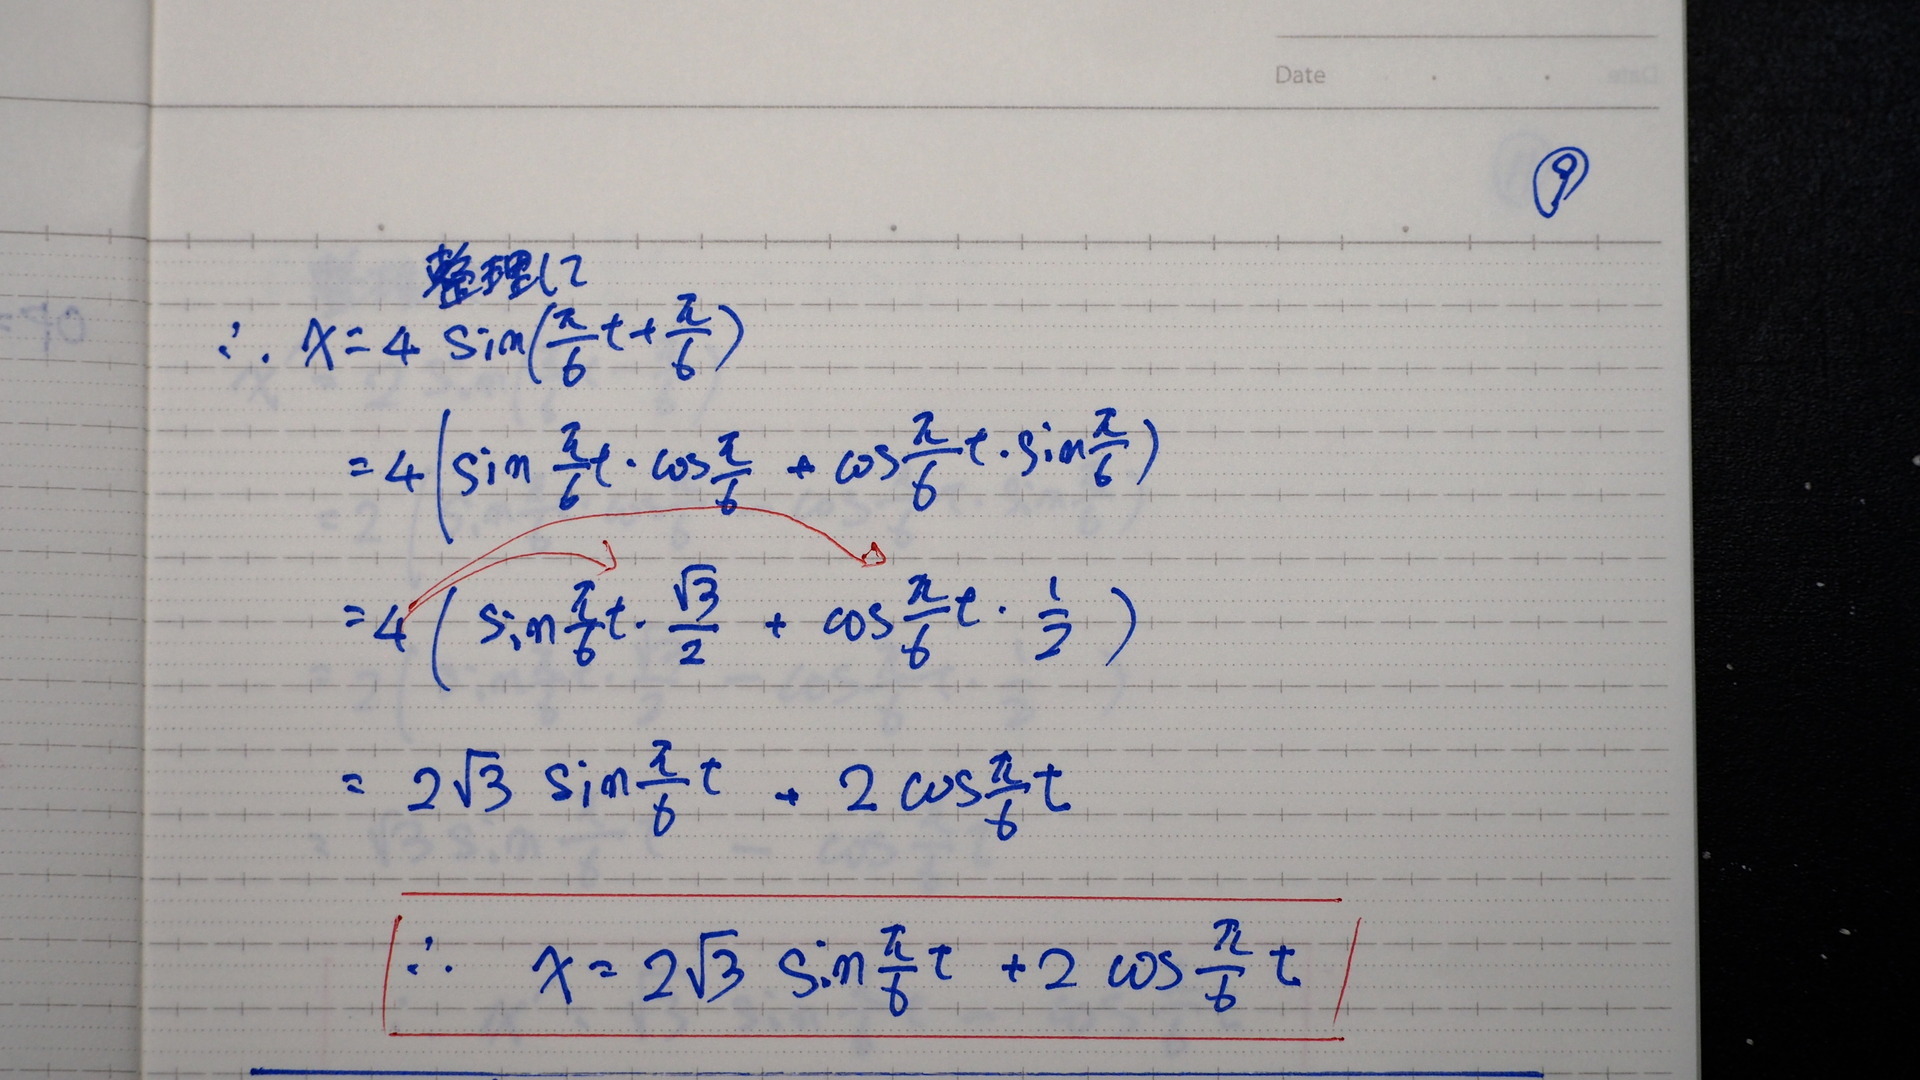 Date
⑨
整理して
∴ x = 4 sin(π/6 t + π/6)
= 4 (sin π/6 t · cos π/6 + cos π/6 t · sin π/6)
= 4 ( sin π/6 t · √3/2 + cos π/6 t · 1/2 )
= 2√3 sin π/6 t + 2 cos π/6 t
∴ x = 2√3 sin π/6 t + 2 cos π/6 t